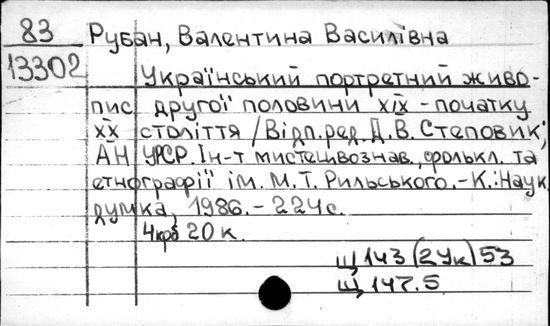 83 Рубан, Валентина Василівна
13302
Український портретний живо-
пис другої половини XIX - початку
XX століття / Відп. ред. Д. В. Степовик;
АН УРСР. Ін-т мистецтвознав., фолькл. та
етнографії ім. М. Т. Рильського. - К.: Наук.
думка, 1986. - 224 с.
4 крб 20 к.
Щ 143 (2Ук) 53
Щ 147.5